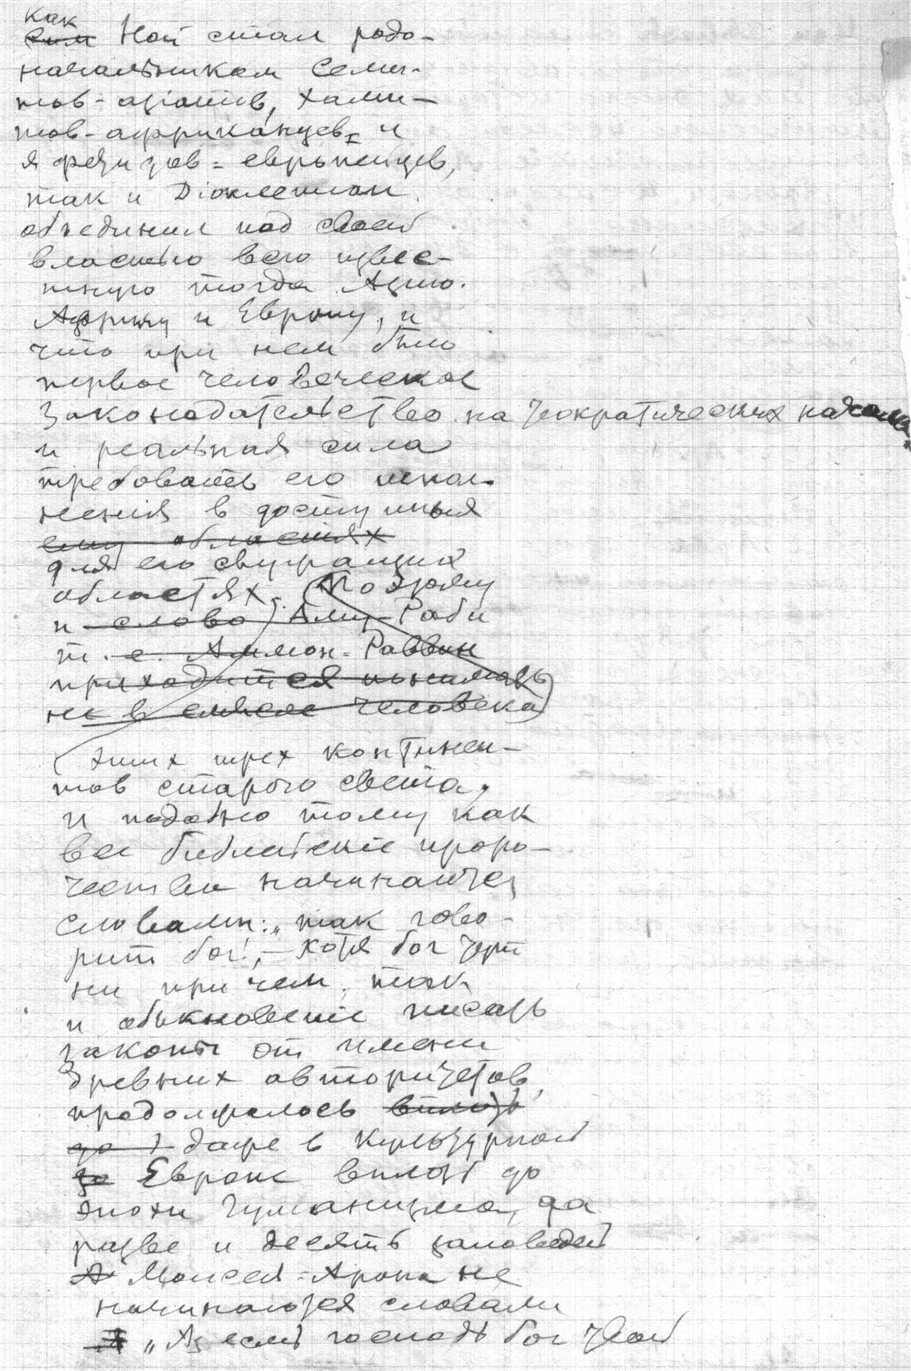 как
Ной стал родо-
начальником семи-
тов-азіатів, хами-
тов-африканцев и
яфетидов-европейцев,
так и Діоклетиан
объединил под своей
властью всю извес-
тную тогда Азию.
Африку и Европу, и
что при нем было
первое человеческое
законодательство на теократических начала
и реальная сила
требовать его испол-
нения в доступныя
ему областях
для его
областях. Поэтому
и слово Аму-Раби
т. е. Аммон-Раввин
приходится понимать
не в смысле человека)
(этих трех континен-
тов старого света,
и подобно тому как
все библейскіе проро-
чества начинаются
словами: „так гово-
рит бог!„ - хотя бог тут
ни при чем, так
и обыкновеніе писать
законы от имени
древних авторитетов
продолжалось вплоть
до даже в культурной
до Европе вплоть до
эпохи гуманизма, да
разве и десять заповедей
А Моисея-Арона не
начинаются словами
„Аз есмь господь бог твой